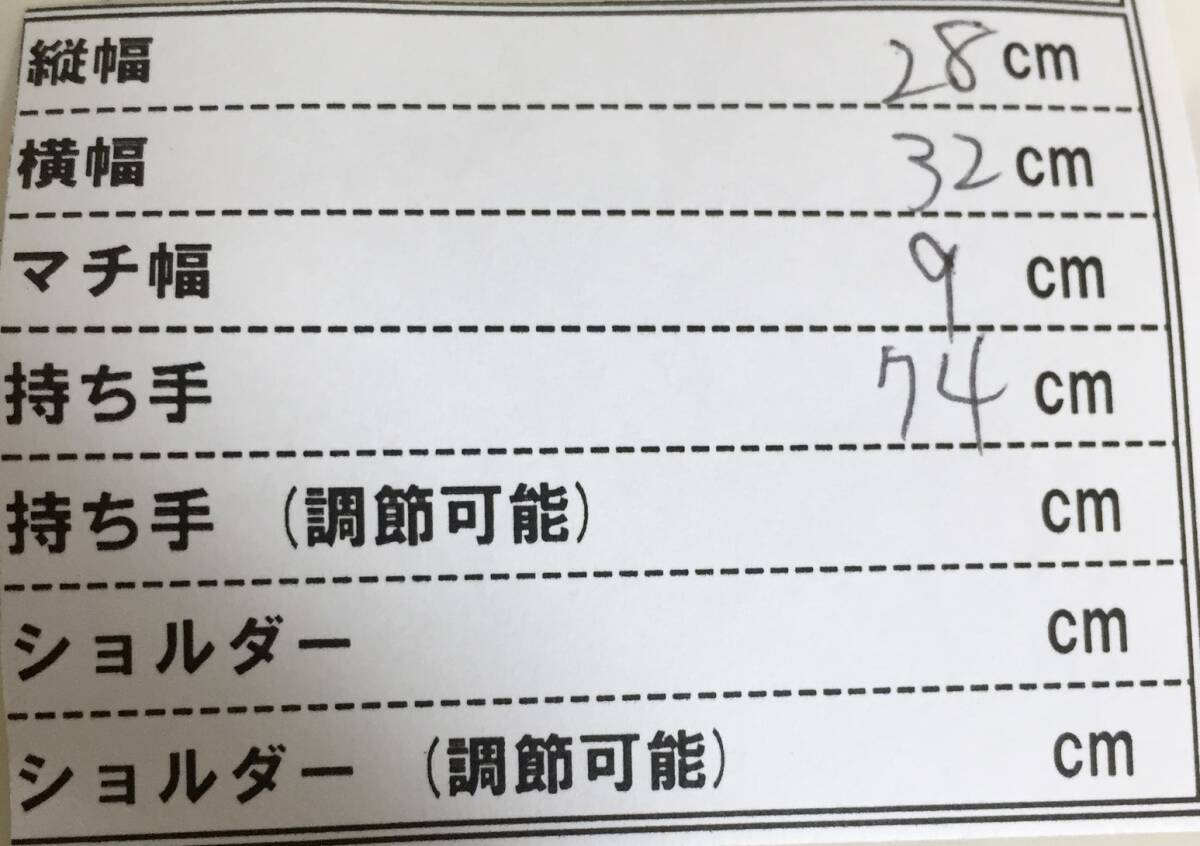 縦幅 28 cm
横幅 32 cm
マチ幅 9 cm
持ち手 74 cm
持ち手 (調節可能) cm
ショルダー cm
ショルダー (調節可能) cm